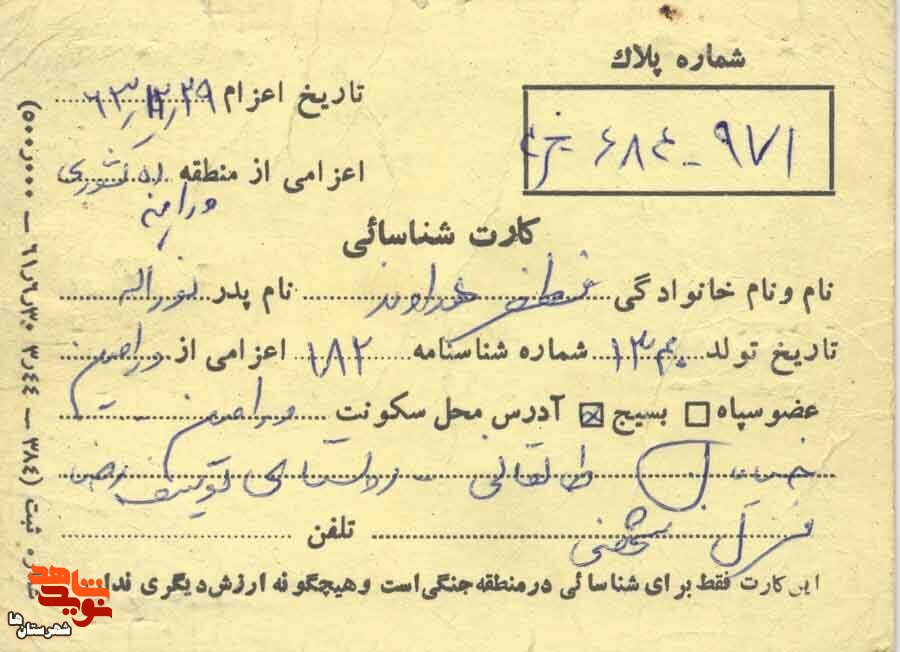 شماره پلاك
۹۷۱ - ۶۸۴
تاریخ اعزام ۶۳٫۱۲٫۲۹
اعزامی از منطقه
ورامین
کارت شناسائی
نام ونام خانوادگی خداوند نام پدر نوراله
تاریخ تولد ۱۳۴۰ شماره شناسنامه ۱۸۲ اعزامی از ورامین
عضو سپاه بسیج آدرس محل سکونت ورامین
خیابان طالقانی - روستای
منزل شخصی تلفن
این کارت فقط برای شناسائی در منطقه جنگی است وهیچگونه ارزش دیگری ندا
ره ثبت (۳۸۴ — ۳٫۴۴ ۶۱٫۶٫۳۰ — ۵۰۰٫۰۰۰)
نوید شاهد
شهرستان‌ها